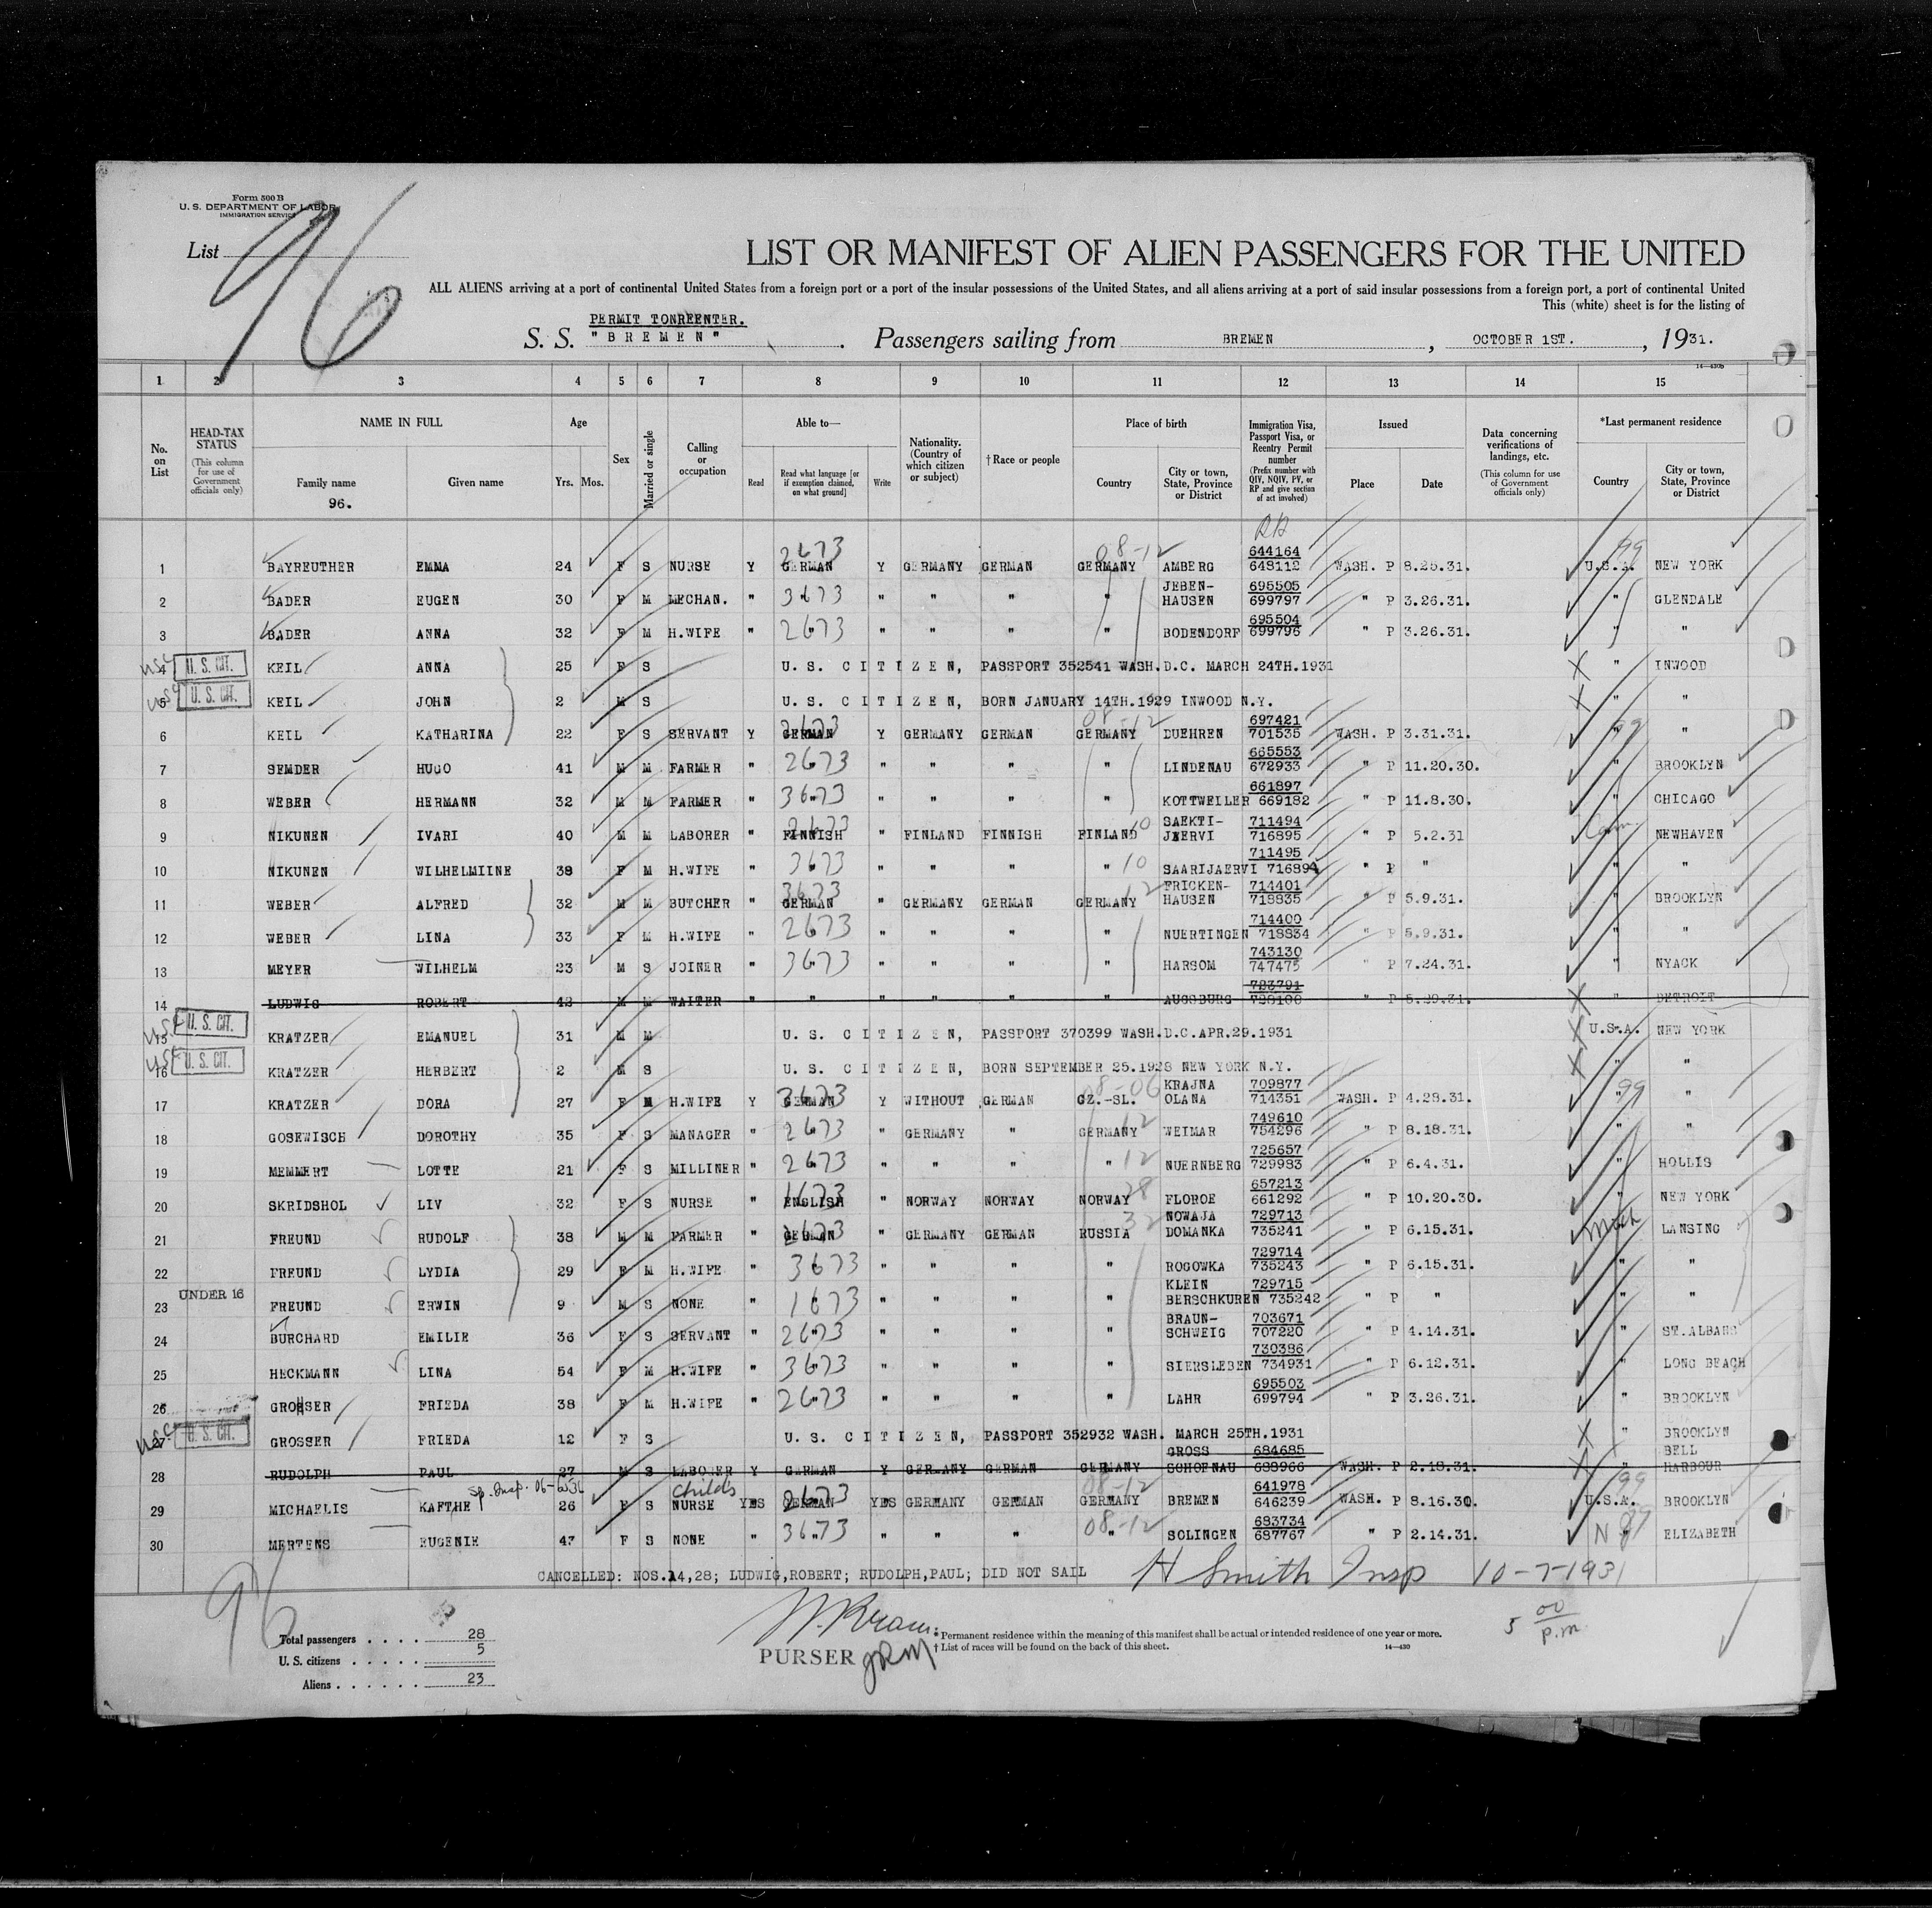 Form 500 B
U. S. DEPARTMENT OF LABOR
IMMIGRATION SERVICE
List 96
LIST OR MANIFEST OF ALIEN PASSENGERS FOR THE UNITED
ALL ALIENS arriving at a port of continental United States from a foreign port or a port of the insular possessions of the United States, and all aliens arriving at a port of said insular possessions from a foreign port, a port of continental United
This (white) sheet is for the listing of
PERMIT TONREENTER.
S. S. "BREMEN". Passengers sailing from BREMEN, OCTOBER 1ST., 1931.
14—430b
1 2 3 4 5 6 7 8 9 10 11 12 13 14 15
No. on List
HEAD-TAX STATUS (This column for use of Government officials only)
NAME IN FULL Family name Given name
96.
Age Yrs. Mos.
Sex
Married or single
Calling or occupation
Able to— Read Read what language [or if exemption claimed, on what ground] Write
Nationality. (Country of which citizen or subject)
†Race or people
Place of birth Country City or town, State, Province or District
Immigration Visa, Passport Visa, or Reentry Permit number (Prefix number with QIV, NQIV, PV, or RP and give section of act involved)
Issued Place Date
Data concerning verifications of landings, etc. (This column for use of Government officials only)
*Last permanent residence Country City or town, State, Province or District
1 BAYREUTHER EMMA 24 F S NURSE Y GERMAN 2673 Y GERMANY GERMAN GERMANY 08-12 AMBERG 644164 648112 WASH. P 8.25.31. U.S.A. 99 NEW YORK
2 BADER EUGEN 30 F M MECHAN. " 3673 " " " " JEBEN-HAUSEN 695505 699797 " P 3.26.31. " GLENDALE
3 BADER ANNA 32 F M H.WIFE " 2673 " " " " BODENDORF 695504 699796 " P 3.26.31. " "
USC 4 U. S. CIT. KEIL ANNA 25 F S U. S. CITIZEN, PASSPORT 352541 WASH.D.C. MARCH 24TH.1931 " INWOOD
USC 5 U. S. CIT. KEIL JOHN 2 M S U. S. CITIZEN, BORN JANUARY 14TH.1929 INWOOD N.Y. " "
6 KEIL KATHARINA 22 F S SERVANT Y GERMAN 2673 Y GERMANY GERMAN GERMANY 08-12 DUEHREN 697421 701535 WASH. P 3.31.31. " 99 "
7 SEMDER HUGO 41 M M FARMER " 2673 " " " " LINDENAU 665553 672933 " P 11.20.30. " BROOKLYN
8 WEBER HERMANN 32 M M FARMER " 3673 " " " " KOTTWEILER 661897 669182 " P 11.8.30. " CHICAGO
9 NIKUNEN IVARI 40 M M LABORER " FINNISH 2673 " FINLAND FINNISH FINLAND 10 SAEKTI-JAERVI 711494 716895 " P 5.2.31 Conn NEWHAVEN
10 NIKUNEN WILHELMIINE 38 F M H.WIFE " 3673 " " " " 10 SAARIJAERVI 711495 716894 " P " " "
11 WEBER ALFRED 32 M M BUTCHER " GERMAN 3673 " GERMANY GERMAN GERMANY 12 FRICKEN-HAUSEN 714401 718835 " P 5.9.31. " BROOKLYN
12 WEBER LINA 33 F M H.WIFE " 2673 " " " " NUERTINGEN 714400 718834 " P 5.9.31. " "
13 MEYER WILHELM 23 M S JOINER " 3673 " " " " HARSOM 743130 747475 " P 7.24.31. " NYACK
14 LUDWIG ROBERT 42 M M WAITER " " " " " " AUGSBURG " P 5.20.31. " DETROIT
USC 15 U. S. CIT. KRATZER EMANUEL 31 M M U. S. CITIZEN, PASSPORT 370399 WASH.D.C.APR.29.1931 U.S.A. NEW YORK
USC 16 U. S. CIT. KRATZER HERBERT 2 M S U. S. CITIZEN, BORN SEPTEMBER 25.1928 NEW YORK N.Y. " "
17 KRATZER DORA 27 F M H.WIFE Y GERMAN 3673 Y WITHOUT GERMAN CZ.-SL. 08-06 KRAJNA OLANA 709877 714351 WASH. P 4.28.31. " 99 "
18 GOSEWISCH DOROTHY 35 F S MANAGER " 2673 " GERMANY " GERMANY 12 WEIMAR 749610 754296 " P 8.18.31. " "
19 MEMMERT LOTTE 21 F S MILLINER " 2673 " " " " 12 NUERNBERG 725657 729983 " P 6.4.31. " HOLLIS
20 SKRIDSHOL LIV 32 F S NURSE " ENGLISH 1673 " NORWAY NORWAY NORWAY 28 FLOROE 657213 661292 " P 10.20.30. " NEW YORK
21 FREUND RUDOLF 38 M M FARMER " GERMAN 2673 " GERMANY GERMAN RUSSIA 32 NOWAJA DOMANKA 729713 735241 " P 6.15.31. Mich LANSING
22 FREUND LYDIA 29 F M H.WIFE " 3673 " " " " ROGOWKA 729714 735243 " P 6.15.31. " "
UNDER 16
23 FREUND ERWIN 9 M S NONE " 1673 " " " " KLEIN BERSCHKUREN 729715 735242 " P " " "
24 BURCHARD EMILIE 36 F S SERVANT " 2673 " " " " BRAUN-SCHWEIG 703671 707220 " P 4.14.31. " ST.ALBANS
25 HECKMANN LINA 54 F M H.WIFE " 3673 " " " " SIERSLEBEN 730386 734931 " P 6.12.31. " LONG BEACH
26 GROSSER FRIEDA 38 F M H.WIFE " 2673 " " " " LAHR 695503 699794 " P 3.26.31. " BROOKLYN
USC 27 U. S. CIT. GROSSER FRIEDA 12 F S U. S. CITIZEN, PASSPORT 352932 WASH. MARCH 25TH.1931 " BROOKLYN
28 RUDOLPH PAUL 27 M S LABORER Y GERMAN Y GERMANY GERMAN GERMANY GROSS SCHOENAU 684685 688966 WASH. P 2.18.31. " BELL HARBOUR
Sp. Insp.
29 MICHAELIS KAETHE 26 F S Childs NURSE YES GERMAN 2673 YES GERMANY GERMAN GERMANY 08-12 BREMEN 641978 646239 WASH. P 8.16.30. U.S.A. 99 BROOKLYN
30 MERTENS EUGENIE 47 F S NONE " 3673 " " " " 08-12 SOLINGEN 683734 687767 " P 2.14.31. " ELIZABETH
CANCELLED: NOS.14,28; LUDWIG,ROBERT; RUDOLPH,PAUL; DID NOT SAIL
H Smith Insp 10-7-1931
5 00 p.m
96
Total passengers . . . . 28
U. S. citizens . . . . . 5
Aliens . . . . . . 23
PURSER
* Permanent residence within the meaning of this manifest shall be actual or intended residence of one year or more.
† List of races will be found on the back of this sheet.
14—430